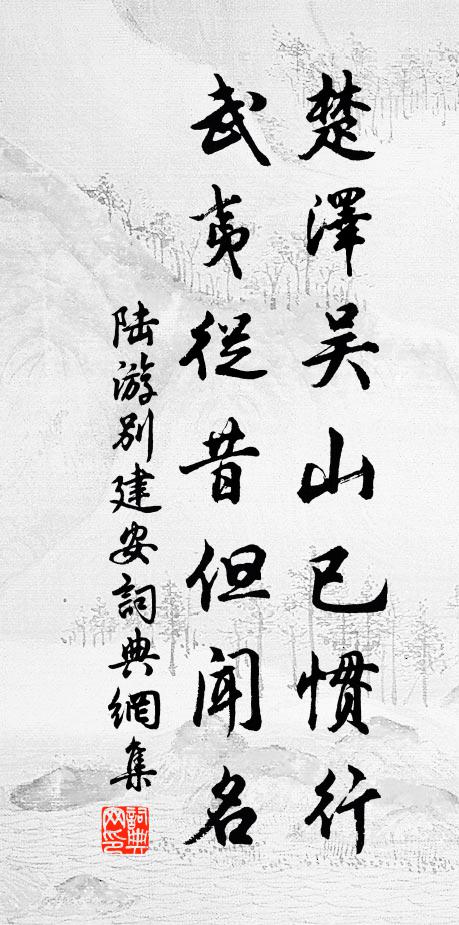 楚澤吴山已慣行
武夷從昔但聞名
陆游别建安詞典網集
詞典網印